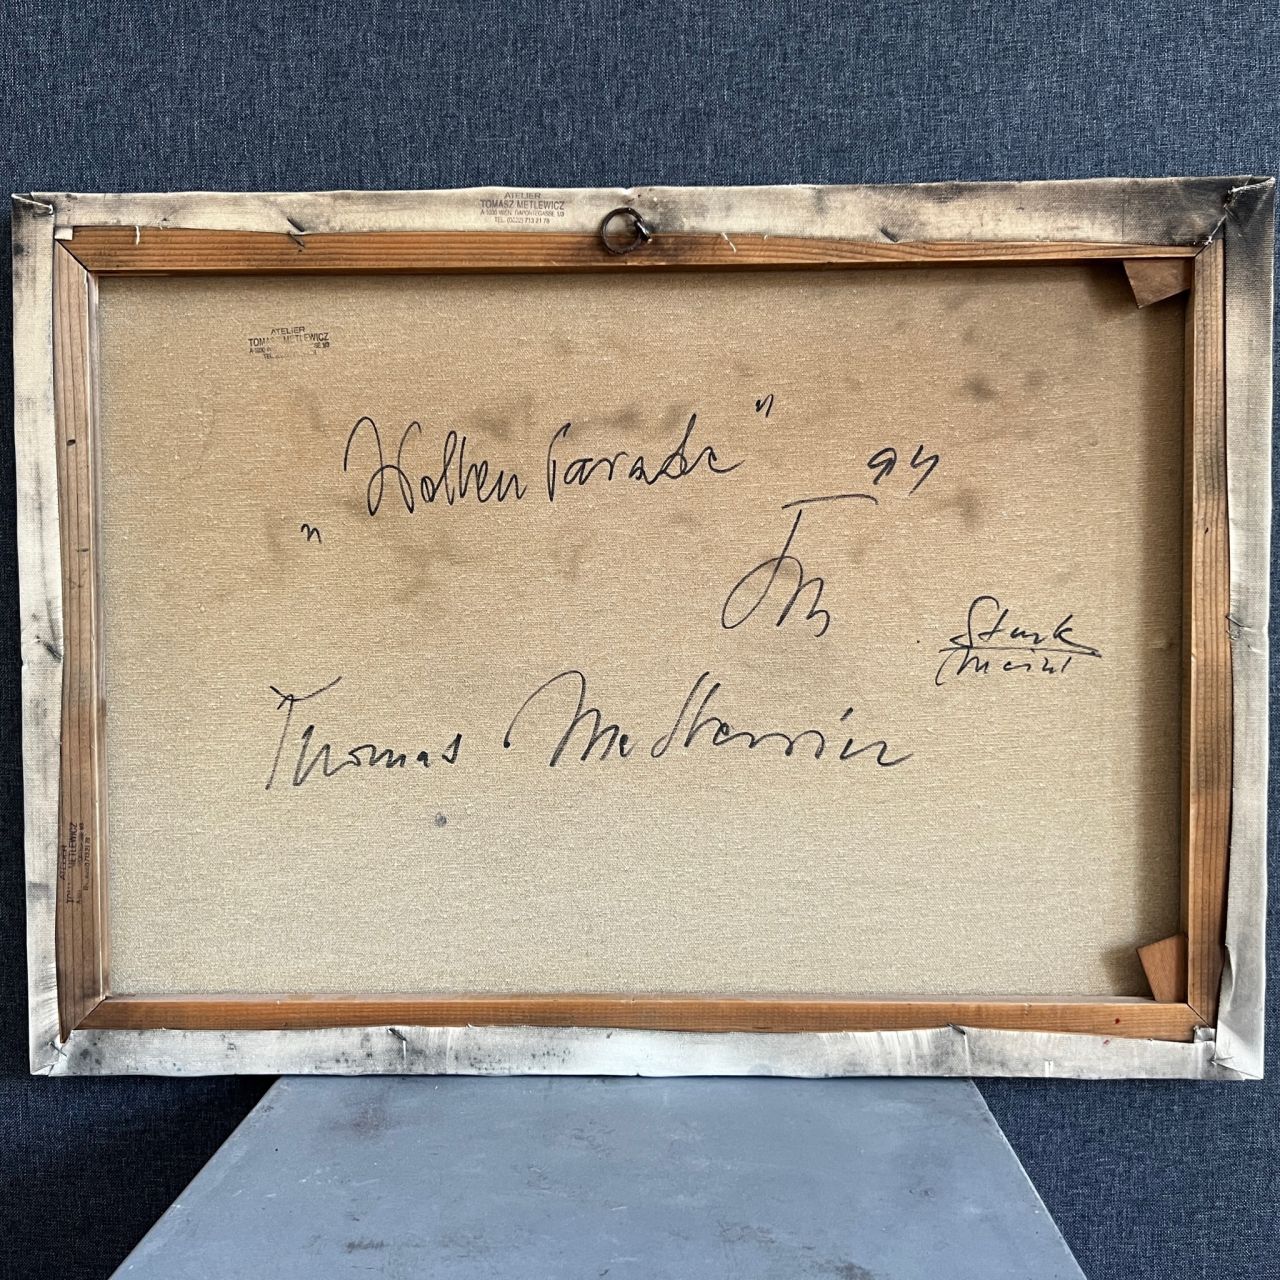 ATELIER
TOMASZ METLEWICZ
A-1030 WIEN, DAPONTEGASSE 1/3
TEL. (0222) 713 21 78
ATELIER
METLEWICZ
TEL.
"Wolken Parade"
94
TM
Thomas Metlewicz
ATELIER
METLEWICZ